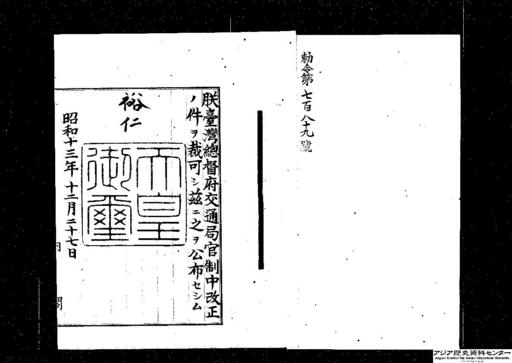 勅令第七百八十九號
朕臺灣總督府交通局官制中改正
ノ件ヲ裁可シ茲ニ之ヲ公布セシム
裕仁
天皇御璽
昭和十三年十二月二十七日
内閣
アジア歴史資料センター
Japan Center for Asian Historical Records